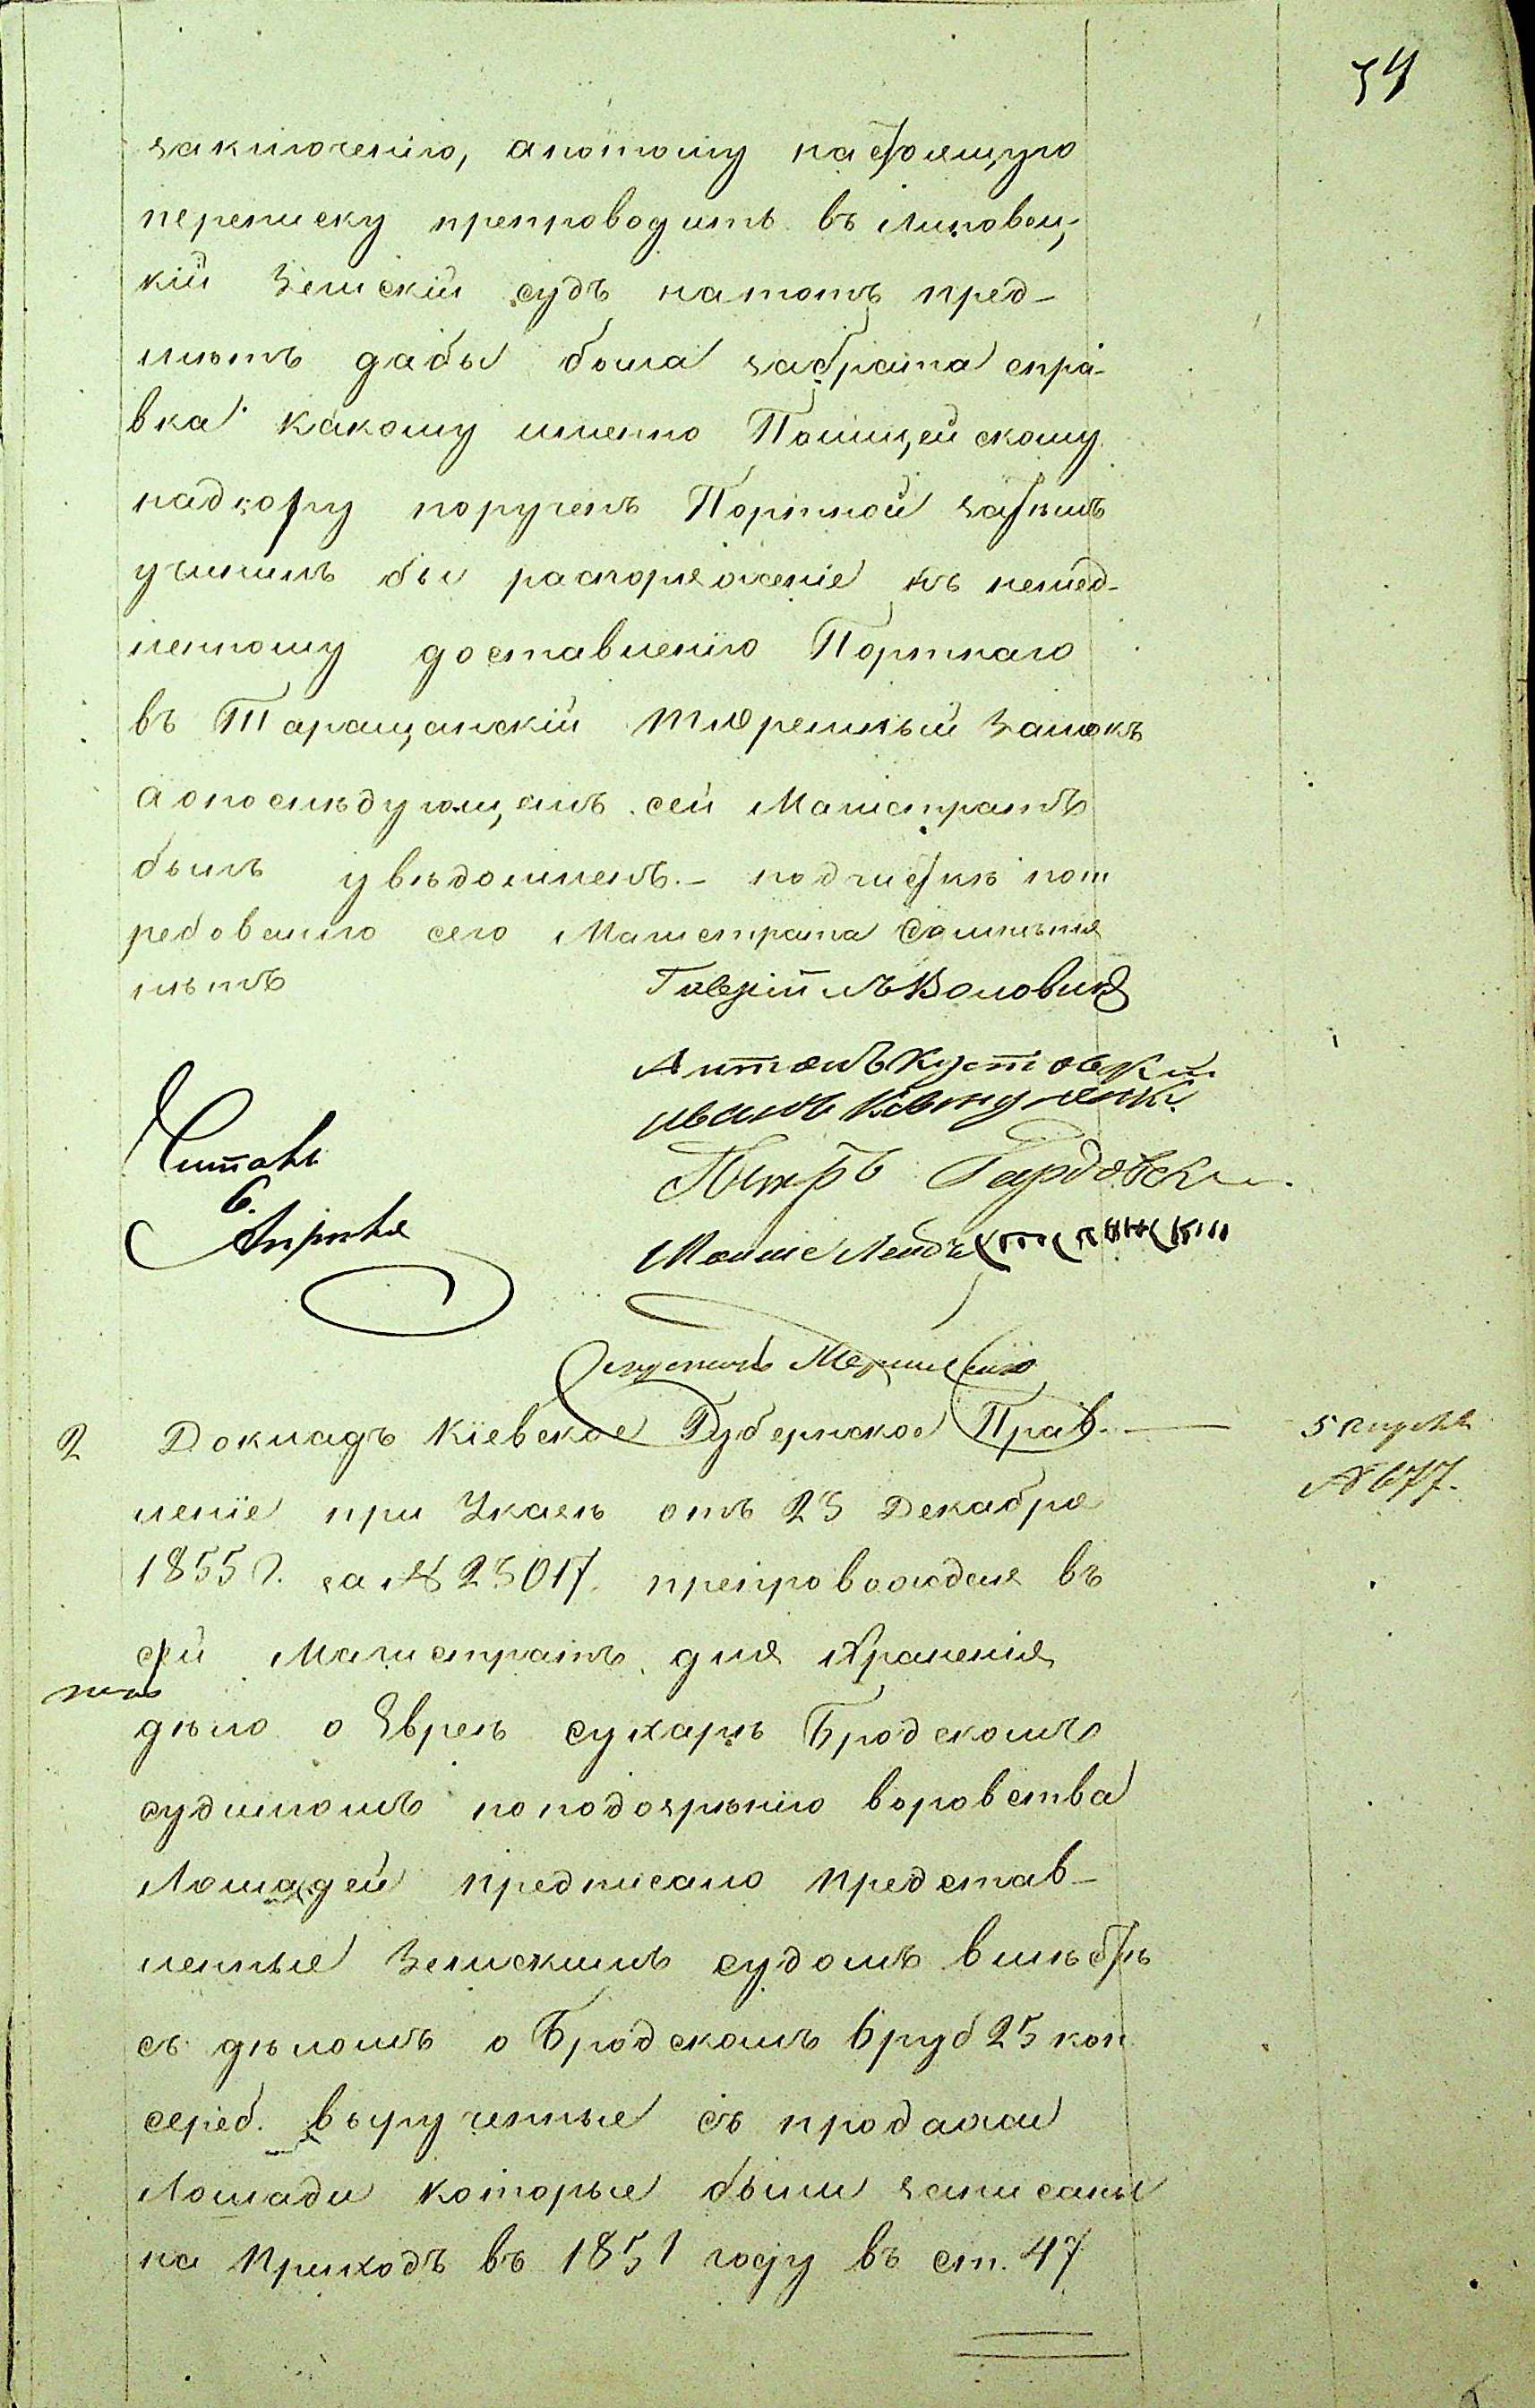 34
заключенію, апотому настоящую
переписку препроводить въ Липовец,
кій Земскій судъ натотъ пред-
мѣтъ дабы была забрата спра-
вка какому именно Полицейскому
надзору порученъ Портной затѣмъ
учинилъ бы распоряженіе къ немед-
ленному доставленію Портнаго
въ Таращанскій тюремный Замокъ
аопослѣдующемъ сей Магистратъ
былъ увѣдомленъ.- подчисткѣ пот
ребованію сего Магистрата
Антонъ
Иванъ
Читалъ
Петръ
6.
Апрѣля
Мошке
2 Докладъ Кіевское Губернское Прав.— 5 апрѣля
леніе при Указѣ отъ 23 Декабря № 677.
1855 г. за № 23017. препровождая въ
сей Магистратъ для храненія
дѣло о Евреѣ сухарѣ Бродскомъ
судимомъ поподозрѣнію воровства
Лошадей предписано представ-
ленные Земскимъ судомъ вмѣстѣ
съ дѣломъ о Бродскомъ 6 руб 25 коп
сереб. вырученные съ продажи
Лошади которые были записаны
на приходъ въ 1851 году въ ст. 47